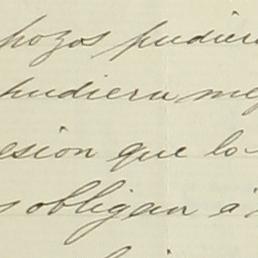 pozos pudier
pudiera me
esion que lo
s obligan á